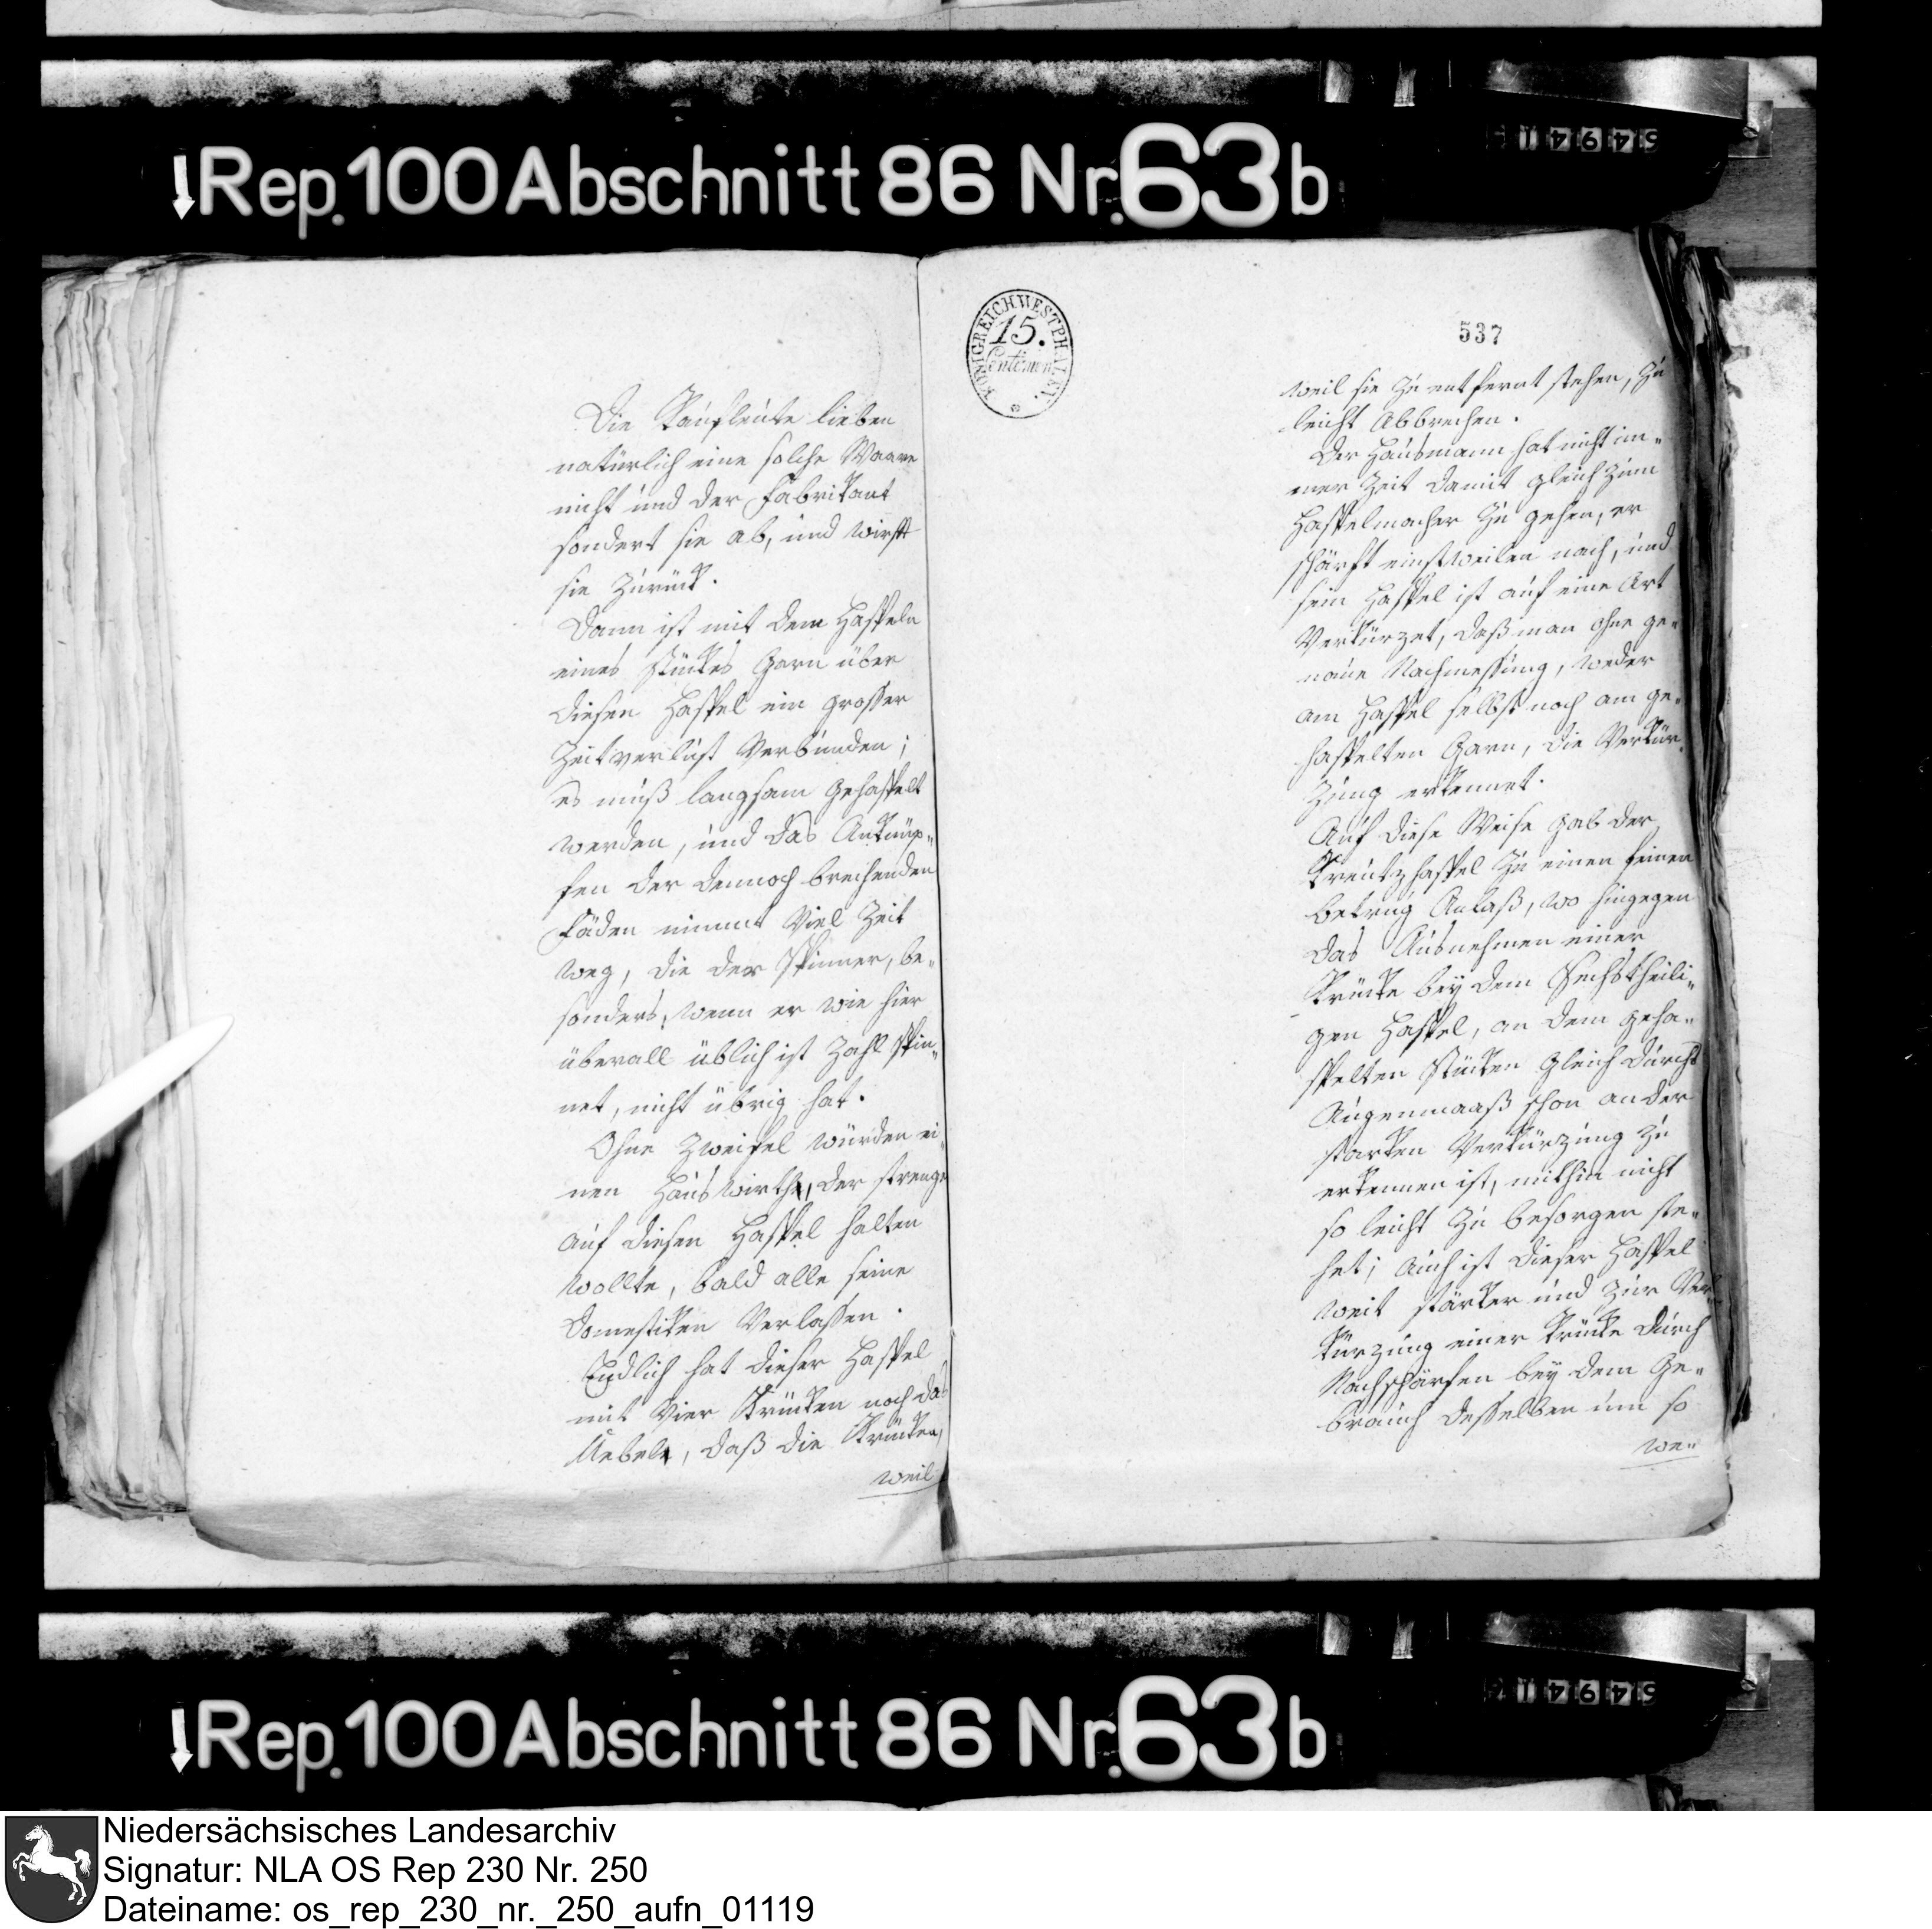 Rep. 100 Abschnitt 86 Nr. 63b
Die Kaufleute lieben
natürlich eine solche Waare
nicht und der Fabrikant
sondert sie ab, und wirft
sie zurück.
Dann ist mit dem Haspeln
eines Stückes Garn über
diesen Haspel ein grosser
Zeitverlust verbunden;
es muß langsam gehaspelt
werden, und das Anknüp-
fen der dennoch brechenden
Fäden nimmt viel Zeit
weg, die der Spinner, be-
sonders, wenn er wie hier
überall üblich ist Zahl spin-
net, nicht übrig hat.
Ohne Zweifel würden ei-
nen Hauswirth, der strenge
auf diesen Haspel halten
wollte, bald alle seine
Domestiken verlassen.
Endlich hat dieser Haspel
mit vier Krücken noch das
Uebel, daß die Krücken,
weil
KÖNIGREICH WESTPHALEN.
15.
Centimen
537
weil sie zu entfernt stehen, zu
leicht abbrechen.
Der Hausmann hat nicht im-
mer Zeit damit gleich zum
Haspelmacher zu gehen, er
schärft einstweilen nach, und
sein Haspel ist auf eine Art
verkürzet, daß man ohne ge-
naue Nachmessung, weder
am Haspel selbst noch am ge-
haspelten Garn, die Verkür-
zung erkennet.
Auf diese Weise gab der
Kreutzhaspel zu einen feinen
Betrug Anlaß, wo hingegen
das Ausnehmen einer
Krücke bey dem Sechstheili-
gen Haspel, an dem geha-
spelten Stücken gleich durchs
Augenmaaß schon an der
starken Verkürzung zu
erkennen ist, mithin nicht
so leicht zu besorgen ste-
het; auch ist dieser Haspel
weit stärker und zur Ver-
kürzung einer Krücke durch
Nachschärfen bey dem Ge-
brauch desselben um so
we-
Rep. 100 Abschnitt 86 Nr. 63b
Niedersächsisches Landesarchiv
Signatur: NLA OS Rep 230 Nr. 250
Dateiname: os_rep_230_nr._250_aufn_01119